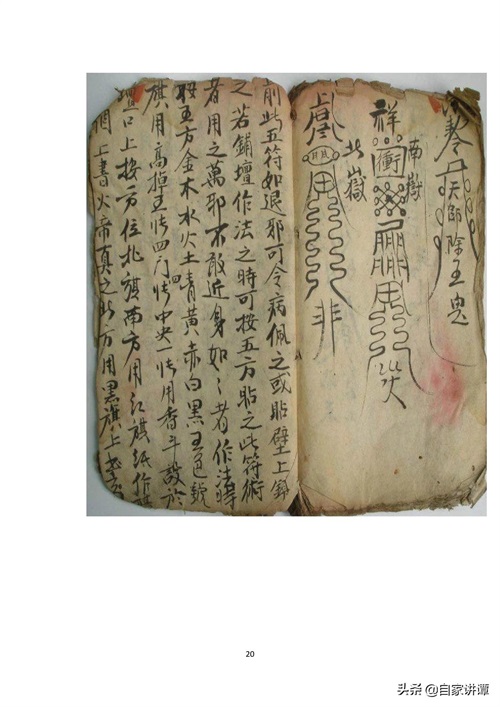 天師除五鬼
南嶽
祥
衝
北嶽
非
前此五符如退邪可令病佩之或貼壁上
之若鋪壇作法之時可按五方貼之此符術
者用之萬邪不敢近身如〻者作法時
五方金木水火土青黃赤白黑五色號
旗用高掉五張四門張中央一張用香斗設於
壇口上按方位北旗南方用紅旗紙作
上書火帝真之北方用黑旗上書
20
头条 @自家讲谭